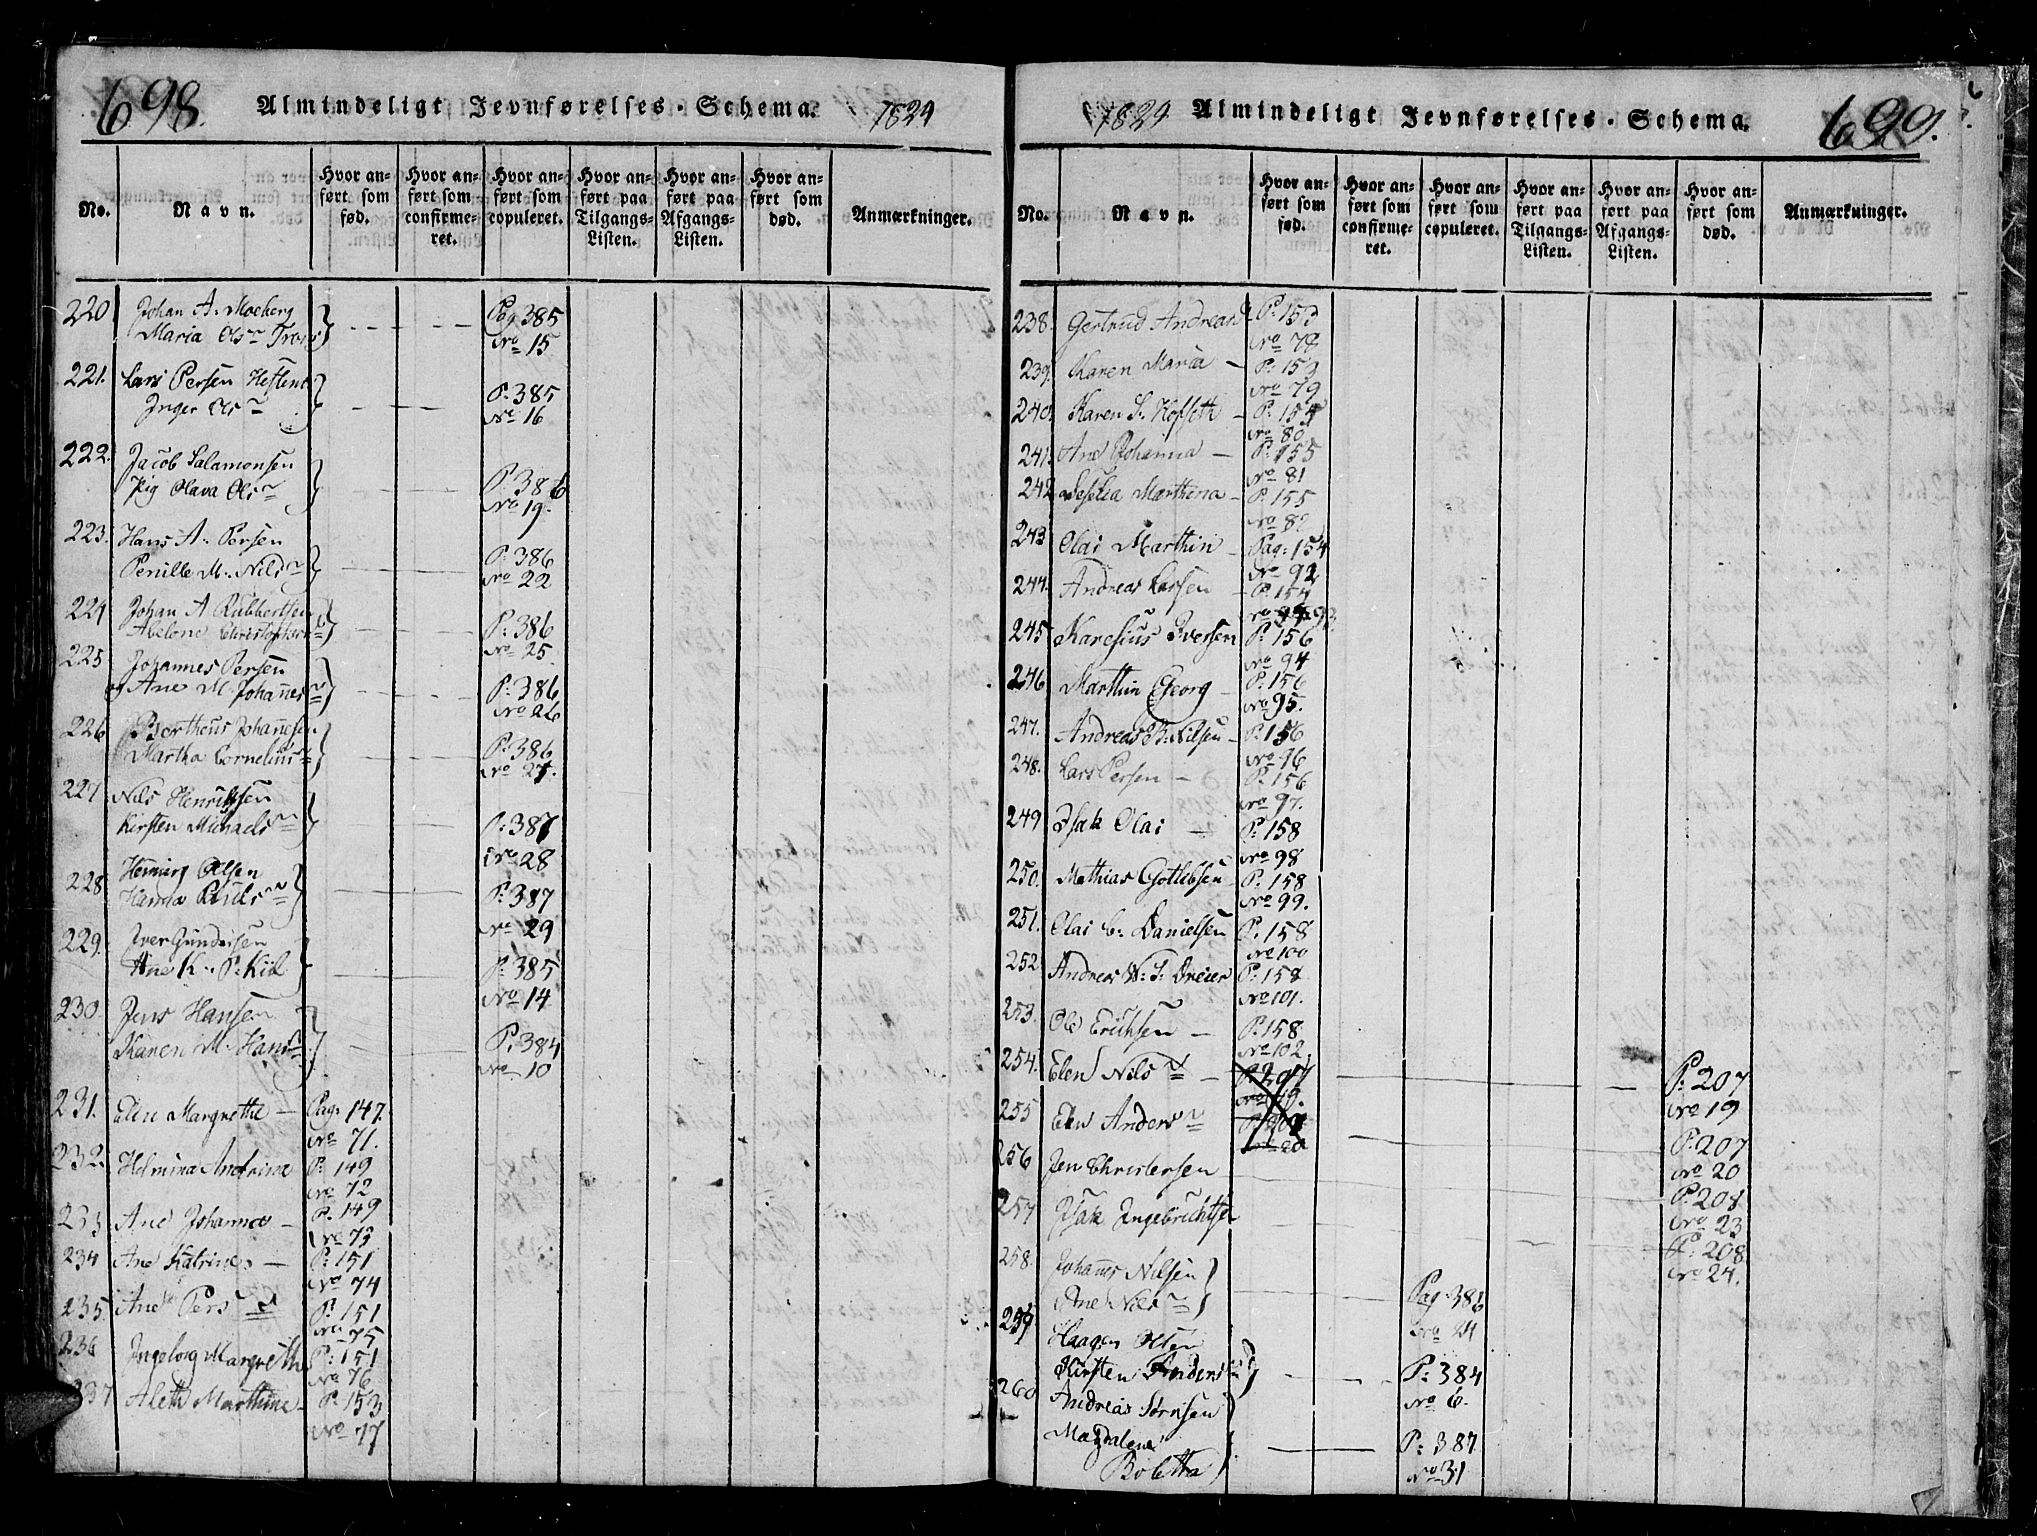 698. Almindeligt Jevnførelses-Schema. 1829
No. Navn. Hvor anført som fød. Hvor anført som confirmeret. Hvor anført som copuleret. Hvor anført paa Tilgangs-Listen. Hvor anført paa Afgangs-Listen. Hvor anført som død. Anmærkninger.
220 Johan A. Moeberg Pag 385
Maria Ols No 15
221. Lars Persen P. 385
Inger Ols No 16
222. Jacob Salamonsen P. 386
Olava Ols No 19.
223. Hans A. Persen P. 386
Penille M. Nilsd No 22
224 Johan A Rubbertsen P. 386
Abelone No 25
225 Johannes Persen P. 386
Ane M. Johannes No 26
226 Bertheus Johannesen P. 386
Martha Cornelius No 27.
227 Nils Henrichsen P. 387
Kirsten Michaels No 28
228 Hemming Olsen P. 387
Hanna No 29
229. Iver Gundersen P. 385
Ane K. P. No 14
230. Jens Hansen P. 384
Karen M. Hans No 10
231. Elen Margrethe — Pag: 147.
No 71.
232. Helmina Andrina P. 149
No 72
233 Ane Johanna — P. 149
No 73
234 Ane Katrine — P. 151
No 74
235. Ane Pers P. 151
No 75
236 Ingeborg Margrethe P. 151
No 76
237 Aleth Marthine — P. 153
No 77
1829 Almindeligt Jevnførelses-Schema. 699.
No. Navn. Hvor anført som fød. Hvor anført som confirmeret. Hvor anført som copuleret. Hvor anført paa Tilgangs-Listen. Hvor anført paa Afgangs-Listen. Hvor anført som død. Anmærkninger.
238. Gertrud Andreas P. 153
No 78
239. Karen Maria — P. 153
No 79
240. Karen S. Hofseth — P. 154
No 80
241. Ane Johanna — P. 155
No 81
242 Marthina — P. 155
No 82
243 Olai Marthin — Pag: 154
No 92
244. Andreas Larsen — P. 154
No 93
245 Karesius Iversen P. 156
No 94
246 Marthin Georg — P. 156
No 95.
247. Andreas B. Nilsen — P. 156
No 96
248. Lars Persen — P. 156
No 97.
249 Isak Olai — P. 158
No 98
250. Mathias Gotlebsen P. 158
No 99.
251. Olai C. Danielsen P. 158
No 100
252. Andreas W. S. Dreier P. 158
No 101.
253. Ole Erichsen — P. 158
No 102
254. Elen Nils — P. 207 P. 207
No 19. No 19
255 Elen Anders P. 207 P. 207
No 20 No 20
256 Jen Christensen P. 208
No 23
257 Isak Ingebrichtsen P. 208
No 24.
258. Johannes Nilsen Pag. 386
Ane Nils No 24
259 Haagen Olsen
Kirsten Anders P. 384
No 6.
260 Andreas Sørnsen
Magdalene P. 387
Boletta No 31